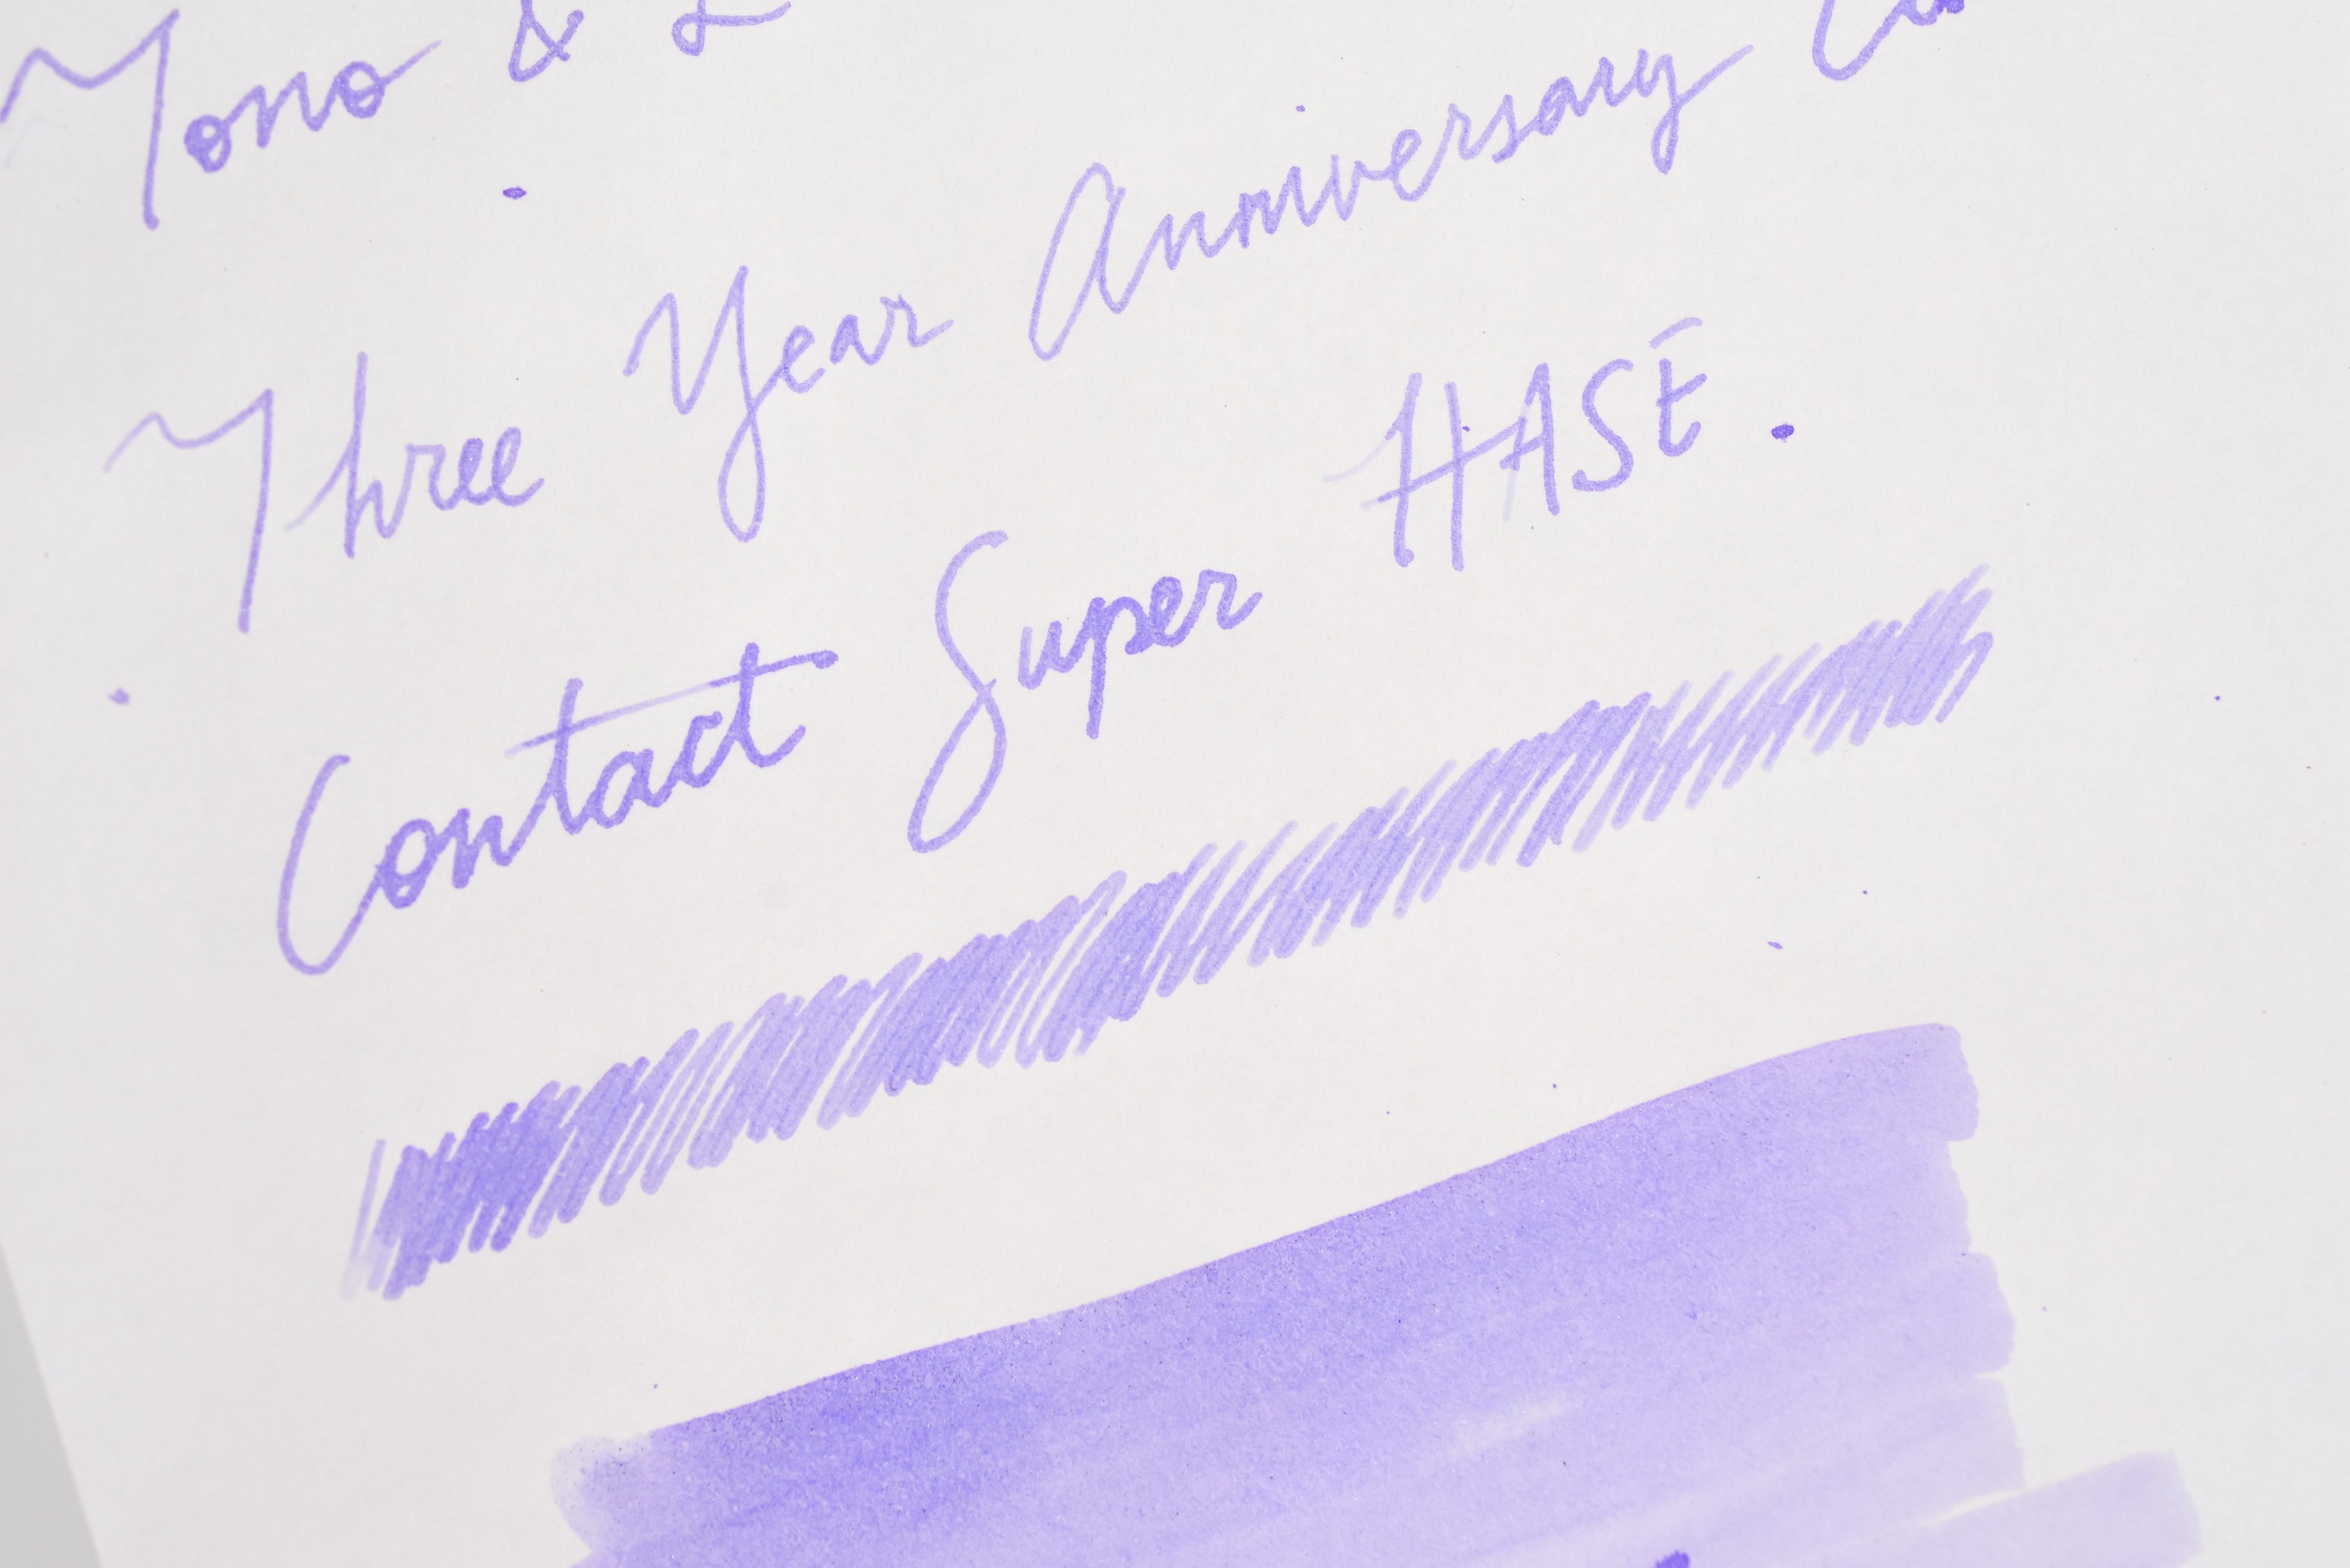 Tono &
Three Year Anniversary
Contact Super HASE.